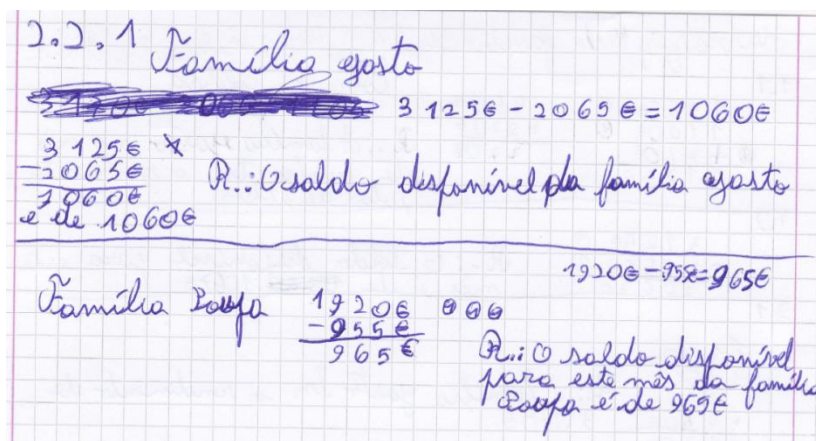 2.2.1 Família gosto
3125€ - 2065€ = 1060€
3125€
-2065€
1060€
R.: O saldo disponível da família gosto
é de 1060€
1920€ - 955€ = 965€
Família Poupa
1920€
-955€
965€
R.: O saldo disponível
para este mês da família
Poupa é de 965€